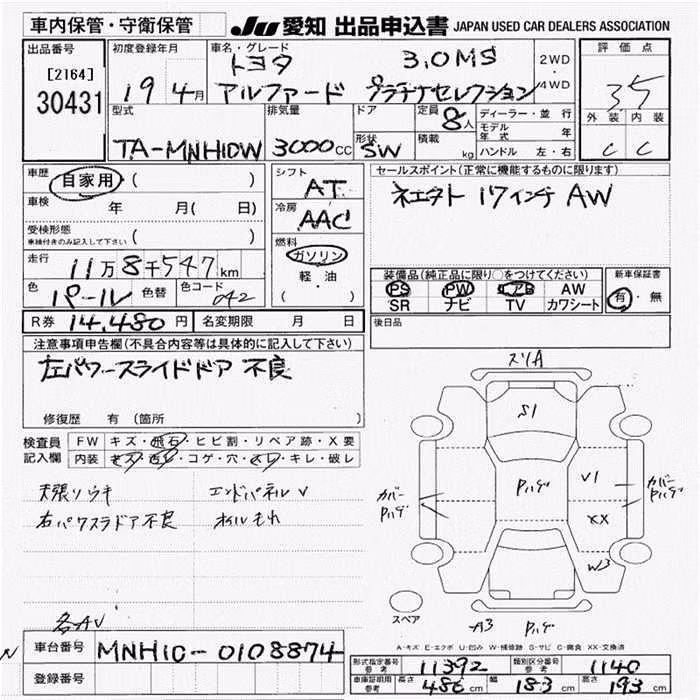 車内保管・守衛保管
JU 愛知 出品申込書 JAPAN USED CAR DEALERS ASSOCIATION
出品番号 初度登録年月 車名・グレード 評価点
[2164] トヨタ 3.0MS 2WD
30431 19 4月 アルファード プラチナセレクション 4WD 3.5
型式 排気量 ドア 定員 8人 ディーラー・並行 外装 内装
モデル年式 年
TA-MNH10W 3000cc 形状 SW 積載 kg ハンドル 左・右 C C
車歴 自家用 ( ) シフト AT セールスポイント(正常に機能するものに限ります)
車検 年 月( 日) 冷房 AAC 17インチ AW
受検形態 ( )
車検付きのみ記入して下さい
燃料 ガソリン 軽・油 ( )
走行 11万8千547km
装備品(純正品に限り○をつけてください) 新車保証書
色 パール 色替 色コード 042 PS PW エアB AW 有・無
SR ナビ TV カワシート
R券 14,480円 名変期限 月 日 後日品
注意事項申告欄(不具合内容等は具体的に記入して下さい)
左パワースライドドア 不良
修復歴 有 (箇所 )
検査員記入欄 FW キズ・飛石・ヒビ割・リペア跡・X要
内装 キズ・汚レ・コゲ・穴・スレ・キレ・破レ
天張ソウキ エンドパネルV
右パワスラドア不良 オイルモれ
スリA
S1
Pハゲ
V1
XX
W3
カバーPハゲ
カバーPハゲ
スペア
A3 Pハゲ
各AV
A-キズ E-エクボ U-凹み W-補修跡 S-サビ C-腐食 XX-交換済
車台番号 MNH10-0108874
登録番号
形式指定番号 参考 11392 類別区分番号 参考 1140
車庫証明用 参考 長さ 486cm 幅 183cm 高さ 193cm